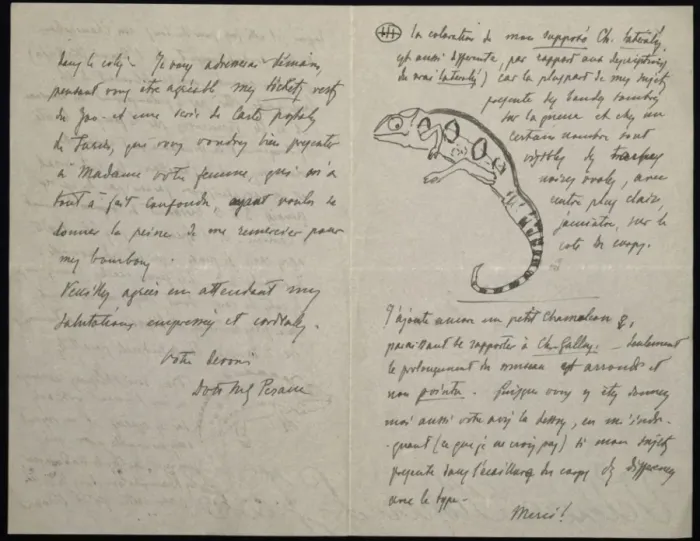 dans le colis. Je vous adresserai demain,
pensant vous être agréable my tickets resty
du Zoo et une serie de Carte postaly
de Tunis, que vous voudrez bien presenter
à Madame votre femme, qui m'a
tout à fait confondu, ayant voulu se
donner la peine de me remercier pour
my bourbony.
Veuilly agreer en attendant my
salutations empressées et cordialy.
Votre devoué
Doct
(III) La coloration de mon supposé Ch. lateraly,
est aussi differente, par rapport aux descriptiony
du vrai lateraly) car la plupart de my sujety
presente dy bandy sombry
sur la queue et chez un
certain nombre sont
visibly dy tachy
noiry ovaly, avec
centre plus clair,
jaunatre, sur le
coté du corpy.
J'ajoute encore un petit Chamaeleon ♀,
paraissant se rapporter à Ch. Gallay. – Seulement
le prolongement du museau est arrondi et
non pointu. Puisque vous y êtes donnez
moi aussi votre avis la dessus, en m'indi-
-quant (ce que je ne crois pas) si mon sujet
presente dans l'écaillure du corps dy differency
avec le type.
Merci!